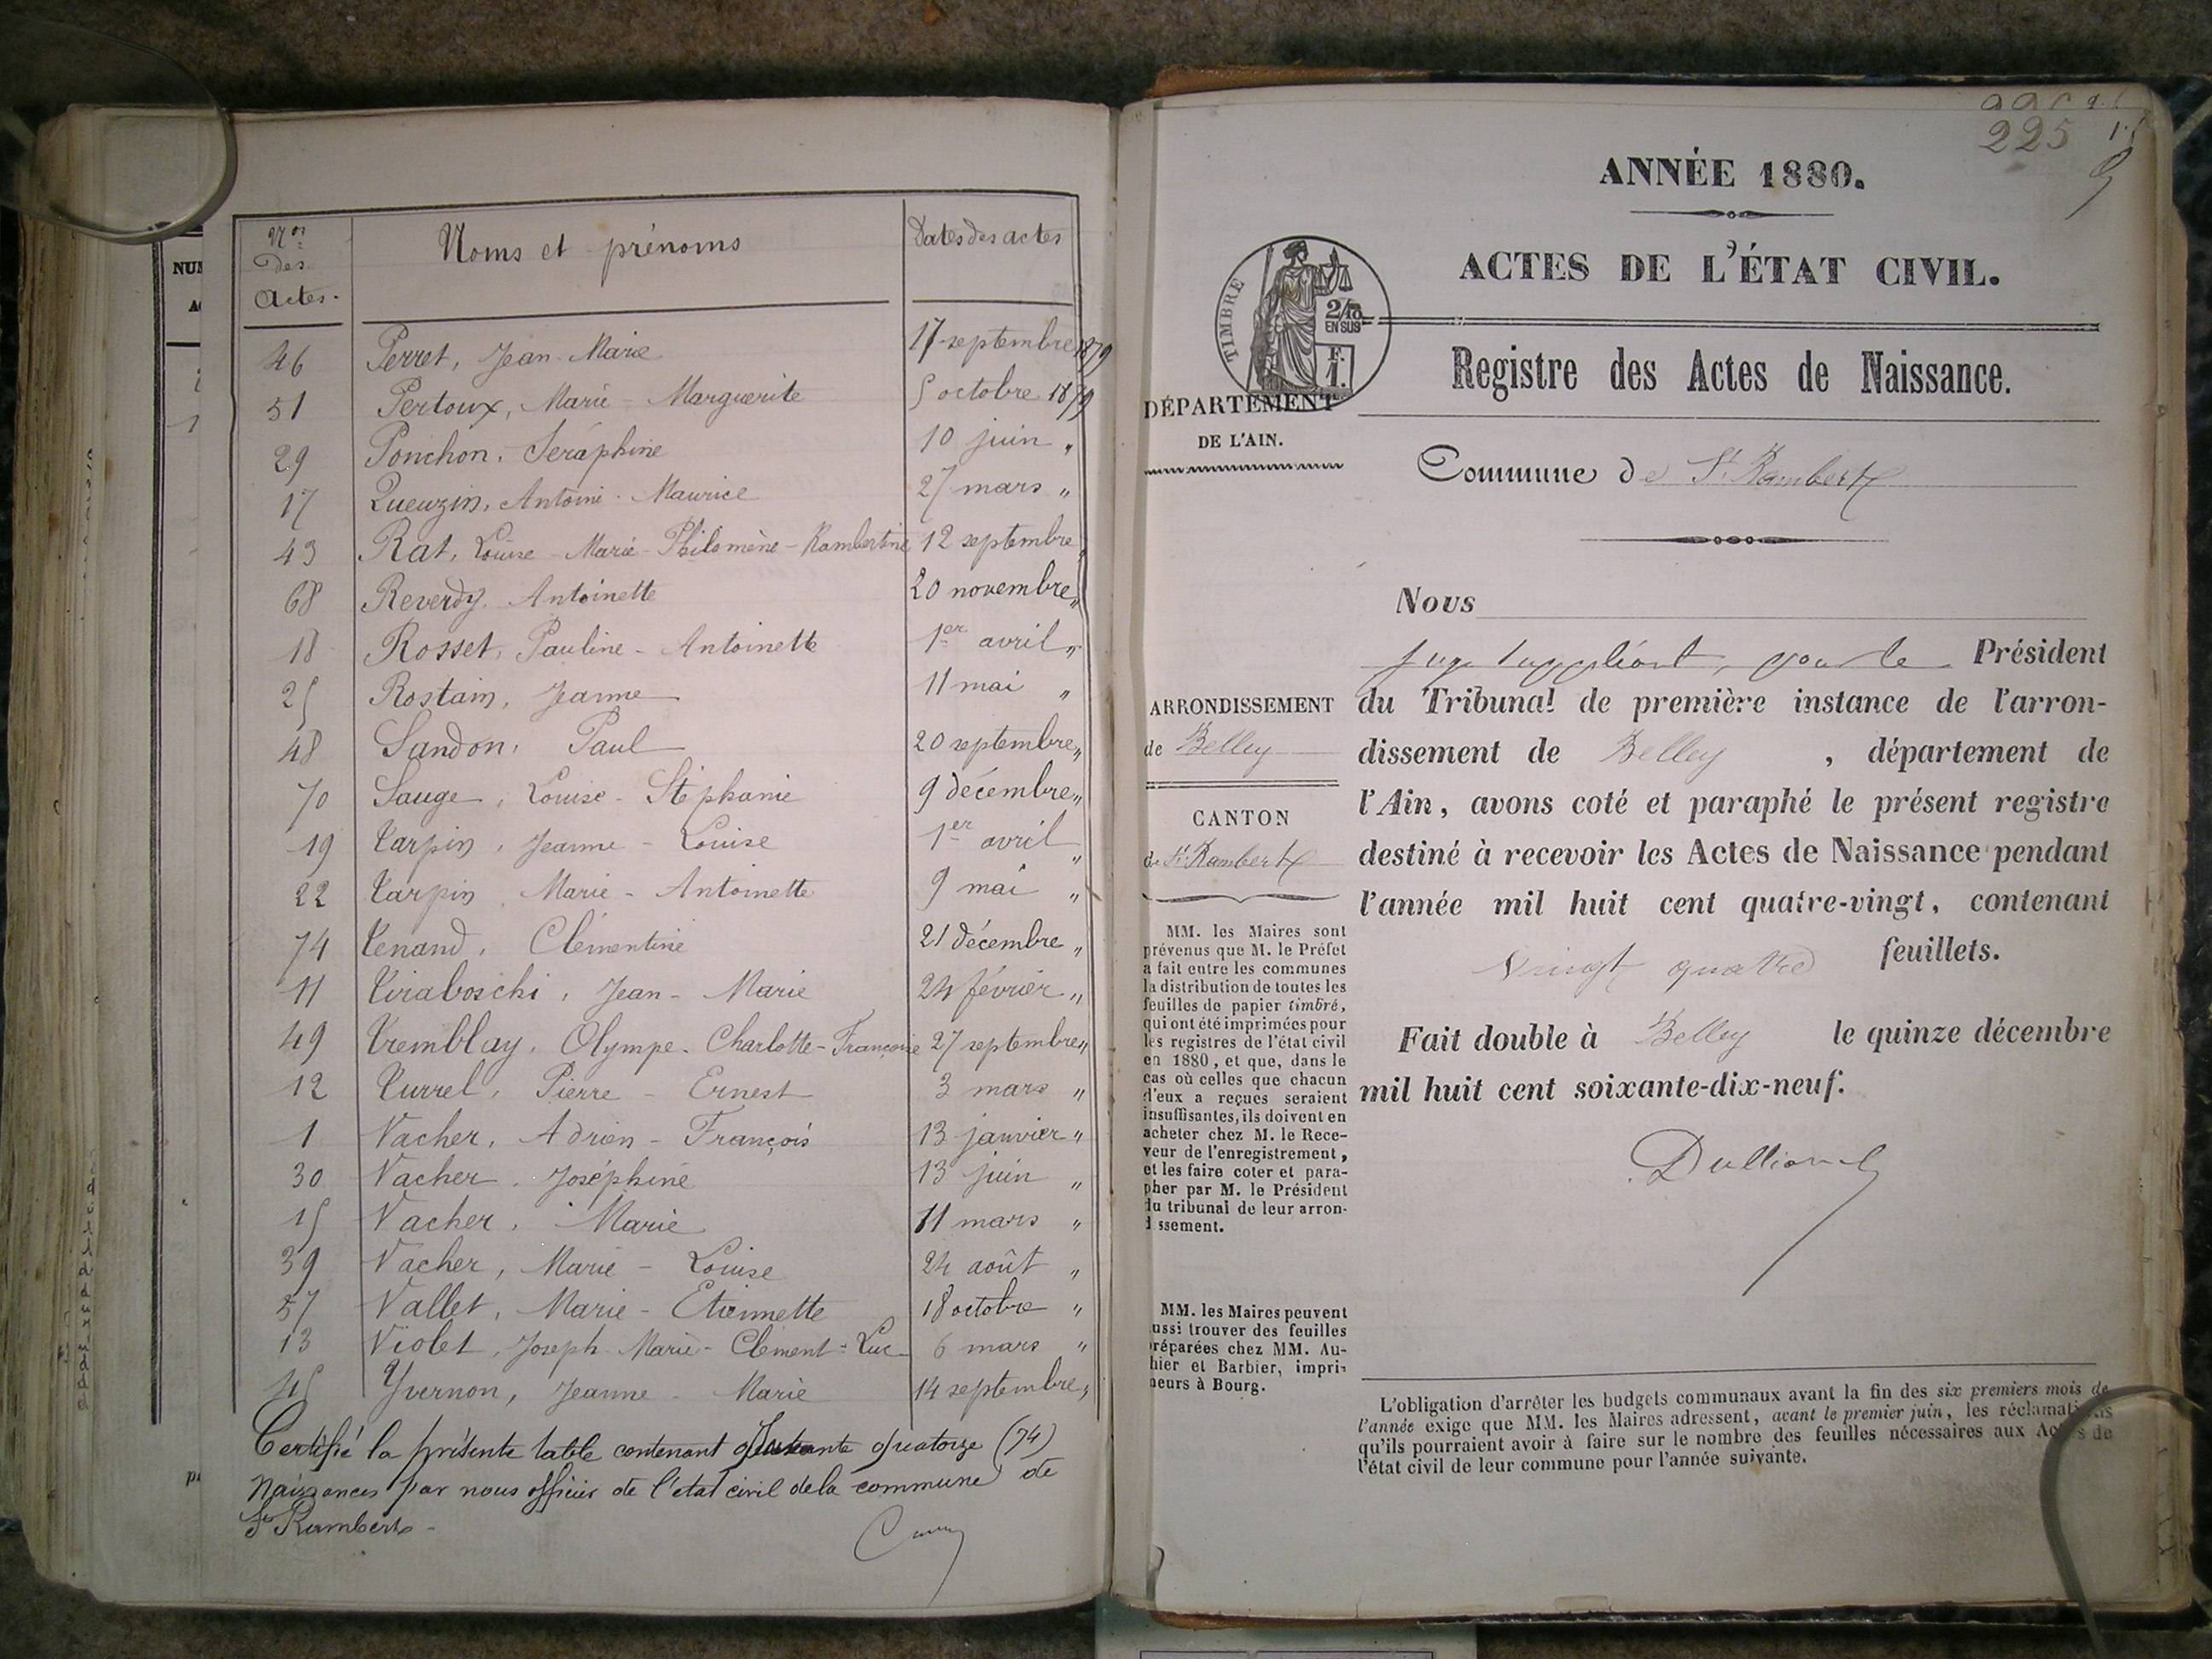 Nos
des
Actes.
Noms et prénoms
Dates des actes
46 Perret, Jean Marie 17 septembre 1879
51 Pertoux, Marie - Marguerite 5 octobre 1879
29 Ponchon, Séraphine 10 juin "
17 Queuzin, Antoine - Maurice 27 mars "
43 Rat, Louise - Marie - Philomène - Rambertine 12 septembre "
68 Reverdy, Antoinette 20 novembre "
18 Rosset, Pauline - Antoinette 1er avril "
25 Rostain, Jeanne 11 mai "
48 Sandon, Paul 20 septembre "
70 Sauge, Louise - Stéphanie 9 décembre "
19 Tarpin, Jeanne - Louise 1er avril "
22 Tarpin, Marie - Antoinette 9 mai "
74 Tenand, Clémentine 21 décembre "
11 Tiraboschi, Jean - Marie 24 février "
49 Tremblay, Olympe - Charlotte - Françoise 27 septembre "
12 Turrel, Pierre - Ernest 3 mars "
1 Vacher, Adrien - François 13 janvier "
30 Vacher, Joséphine 13 juin "
15 Vacher, Marie 11 mars "
39 Vacher, Marie - Louise 24 août "
57 Vallet, Marie - Etiennette 18 octobre "
13 Violet, Joseph Marie - Clément - Luc 6 mars "
45 Yvernon, Jeanne - Marie 14 septembre "
Certifié la présente table contenant quatorze (74)
naissances par nous officier de l'état civil de la commune de
St Rambert
225
ANNÉE 1880.
ACTES DE L'ÉTAT CIVIL.
TIMBRE
2/10
EN SUS
F.
1.
Registre des Actes de Naissance.
DÉPARTEMENT
DE L'AIN.
Commune de St Rambert
Nous
juge suppléant, pour le Président
du Tribunal de première instance de l'arron-
dissement de Belley, département de
l'Ain, avons coté et paraphé le présent registre
destiné à recevoir les Actes de Naissance pendant
l'année mil huit cent quatre-vingt, contenant
vingt quatre feuillets.
Fait double à Belley le quinze décembre
mil huit cent soixante-dix-neuf.
ARRONDISSEMENT
de Belley
CANTON
de St Rambert
MM. les Maires sont
prévenus que M. le Préfet
a fait entre les communes
la distribution de toutes les
feuilles de papier timbré,
qui ont été imprimées pour
les registres de l'état civil
en 1880, et que, dans le
cas où celles que chacun
d'eux a reçues seraient
insuffisantes, ils doivent en
acheter chez M. le Rece-
veur de l'enregistrement,
et les faire coter et para-
pher par M. le Président
du tribunal de leur arron-
dissement.
MM. les Maires peuvent
aussi trouver des feuilles
préparées chez MM. Au-
thier et Barbier, impri-
meurs à Bourg.
L'obligation d'arrêter les budgets communaux avant la fin des six premiers mois de
l'année exige que MM. les Maires adressent, avant le premier juin, les réclamations
qu'ils pourraient avoir à faire sur le nombre des feuilles nécessaires aux Actes de
l'état civil de leur commune pour l'année suivante.